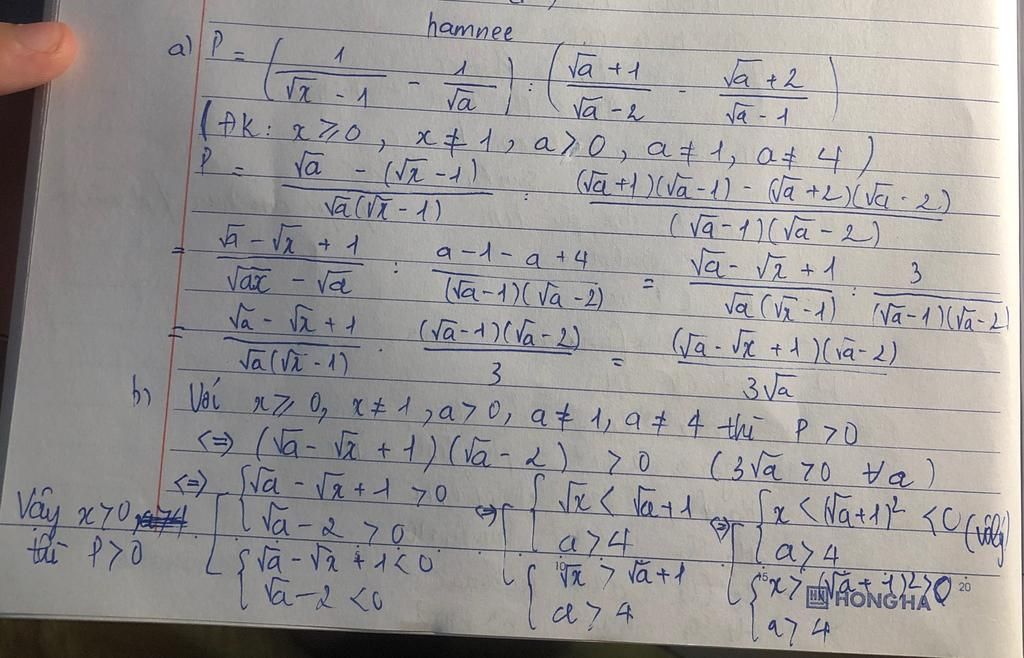 hamnee
a) P = (1/(√x - 1) - 1/√a) : ((√a + 1)/(√a - 2) - (√a + 2)/(√a - 1))
(ĐK: x ≥ 0, x ≠ 1, a > 0, a ≠ 1, a ≠ 4)
P = (√a - (√x - 1))/(√a(√x - 1)) : ((√a+1)(√a-1) - (√a+2)(√a-2))/((√a-1)(√a-2))
= (√a - √x + 1)/(√ax - √a) : (a - 1 - a + 4)/((√a-1)(√a-2)) = (√a - √x + 1)/(√a(√x-1)) : 3/((√a-1)(√a-2))
= (√a - √x + 1)/(√a(√x-1)) . ((√a-1)(√a-2))/3 = ((√a - √x + 1)(√a-2))/(3√a)
b) Với x ≥ 0, x ≠ 1, a > 0, a ≠ 1, a ≠ 4 thì P > 0
<=> (√a - √x + 1)(√a - 2) > 0 (3√a > 0 ∀a)
<=> [ { √a - √x + 1 > 0 <=> [ { √x < √a + 1 <=> [ { x < (√a+1)² < 0 (vôlý)
√a - 2 > 0 a > 4 a > 4
{ √a - √x + 1 < 0 { √x > √a + 1 { x > (√a + 1)² > 0
√a - 2 < 0 a > 4 a > 4
Vậy x > 0
thì P > 0
10 15 20
HONG HA